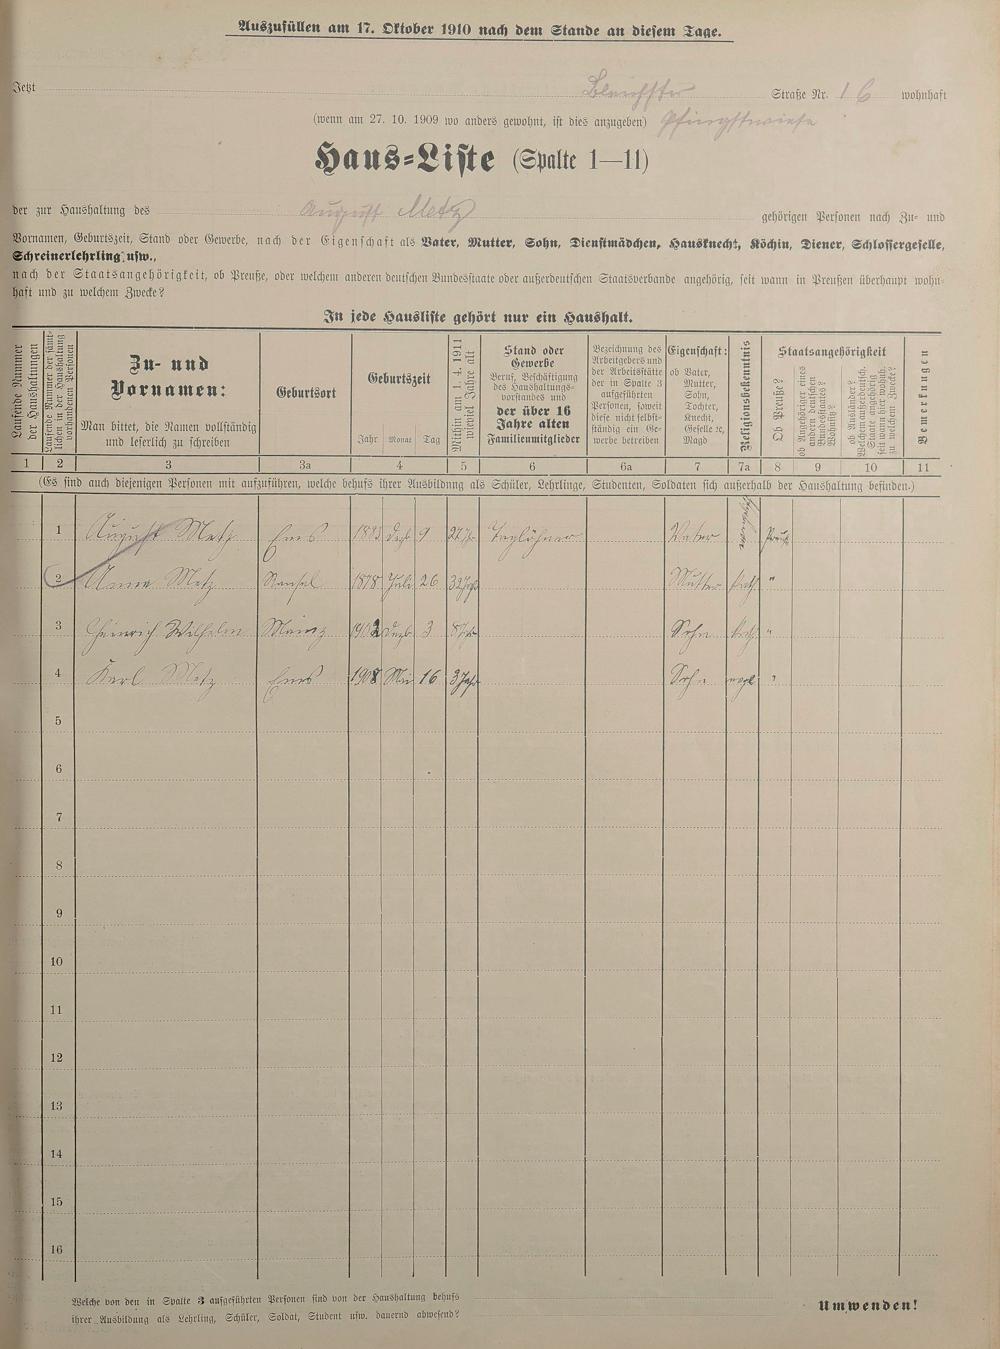 Auszufüllen am 17. Oktober 1910 nach dem Stande an diesem Tage.
Jetzt Bleichstr Straße Nr. 16 wohnhaft
(wenn am 27. 10. 1909 wo anders gewohnt, ist dies anzugeben) Pfingstwiese
Haus-Liste (Spalte 1—11)
der zur Haushaltung des August Metz gehörigen Personen nach Zu- und
Vornamen, Geburtszeit, Stand oder Gewerbe, nach der Eigenschaft als Vater, Mutter, Sohn, Dienstmädchen, Hausknecht, Köchin, Diener, Schlossergeselle,
Schreinerlehrling usw.,
nach der Staatsangehörigkeit, ob Preuße, oder welchem anderen deutschen Bundesstaate oder außerdeutschen Staatsverbande angehörig, seit wann in Preußen überhaupt wohn-
haft und zu welchem Zwecke?
In jede Hausliste gehört nur ein Haushalt.
Laufende Nummer
der Haushaltungen
Laufende Nummer der sämt-
lichen in der Haushaltung
vorhandenen Personen
Zu- und
Vornamen:
Man bittet, die Namen vollständig
und leserlich zu schreiben
Geburtsort
Geburtszeit
Jahr Monat Tag
Mithin am 1. 4. 1911
wieviel Jahre alt
Stand oder
Gewerbe
Beruf, Beschäftigung
des Haushaltungs-
vorstandes und
der über 16
Jahre alten
Familienmitglieder
Bezeichnung des
Arbeitgebers und
der Arbeitsstätte
der in Spalte 3
aufgeführten
Personen, soweit
diese nicht selbst-
ständig ein Ge-
werbe betreiben
Eigenschaft:
ob Vater,
Mutter,
Sohn,
Tochter,
Knecht,
Geselle ꝛc,
Magd
Religionsbekenntnis
Staatsangehörigkeit
Ob Preuße?
ob Angehöriger eines
andern deutschen
Bundesstaates?
Wohnsitz?
ob Ausländer?
Welchem außerdeutsch.
Staate angehörig
seit wann hier wohnh.
zu welchem Zwecke?
Bemerkungen
1 2 3 3a 4 5 6 6a 7 7a 8 9 10 11
(Es sind auch diejenigen Personen mit aufzuführen, welche behufs ihrer Ausbildung als Schüler, Lehrlinge, Studenten, Soldaten sich außerhalb der Haushaltung befinden.)
1 August Metz Ems Dezb 9 Taglöhner Vater Preuß
2 Anna Metz 1878 Juli 26 32 Jahr Mutter kath. "
3 Heinrich Wilhelm Mainz 1902 Dezb 3 8 Jhr Sohn kath "
4 Karl Metz Ems 1908 Mai 16 3 Jahr Sohn "
5
6
7
8
9
10
11
12
13
14
15
16
Welche von den in Spalte 3 aufgeführten Personen sind von der Haushaltung behufs
ihrer Ausbildung als Lehrling, Schüler, Soldat, Student usw. dauernd abwesend?
Umwenden!